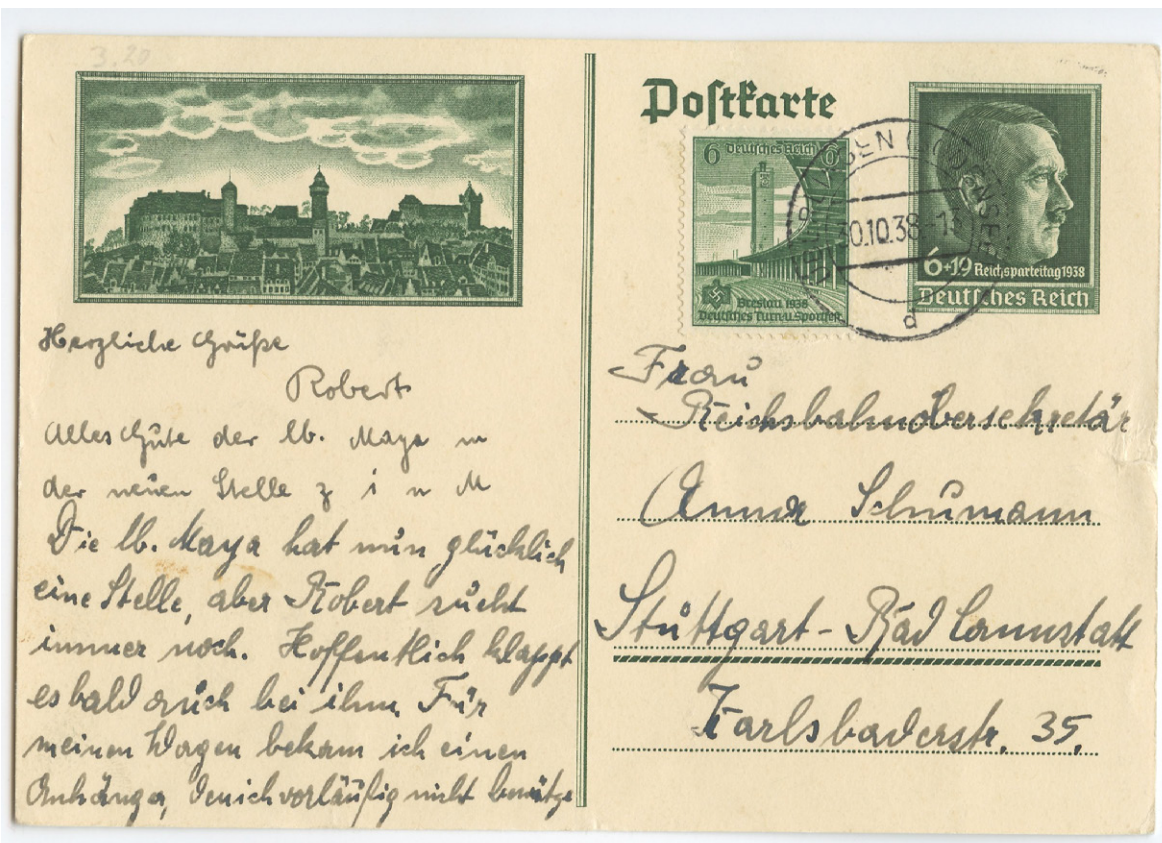 3.20
Herzliche Grüße
Robert
Alles Gute der lb. Maya in
der neuen Stelle z i n M
Die lb. Maya hat nun glücklich
eine Stelle, aber Robert sucht
immer noch. Hoffentlich klappt
es bald auch bei ihm. Für
meinen Wagen bekam ich einen
Anhänger, den ich vorläufig nicht benütze
Postkarte
6 Deutsches Reich 6
Breslau 1938
Deutsches Turn-u. Sportfest
30.10.38.-13
d
6+19 Reichsparteitag 1938
Deutsches Reich
Frau
Reichsbahnobersekretär
Anna Schumann
Stuttgart - Bad Cannstatt
Karlsbaderstr. 35.